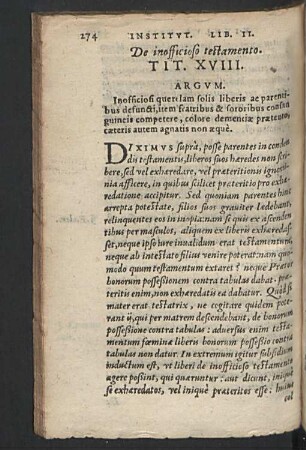 274 INSTITVT. LIB. II.
De inofficioso testamento.
TIT. XVIII.
ARGVM.
Inofficiosi querelam solis liberis ac parenti-
bus defuncti, item fratribus & sororibus consan
guineis competere, colore dementiæ prætento,
cæteris autem agnatis non æquè.
DIXIMVS suprà, posse parentes in conden
dis testamentis, liberos suos hæredes non scri
bere, sed vel exhæredare, vel præteritionis ignomi
nia afficere, in quibus scilicet præteritio pro exhæ
redatione accipitur. Sed quoniam parentes hinc
arrepta potestate, filios suos grauiter lædebant,
relinquentes eos in inopia: nam si quis ex ascenden
tibus per masculos, aliquem ex liberis exhæredas
set, neque ipso iure inualidum erat testamentum,
neque ab intestato filius venire poterat: nam quo
modo quum testamentum extaret? neque Prætor
honorum possessionem contra tabulas dabat.
præteriti enim, non exhæredati ea dabatur.
mater erat testatrix, ne cogitare quidem pote-
rant ij, qui per matrem descendebant, de honorum
possessione contra tabulas: aduersus enim testa-
mentum fœminæ liberis honorum possessio contra
tabulas non datur. In extremum igitur subsidium
inductum est, vt liberi de inofficioso testamento
agere possint, qui quæruntur: aut dicunt, iniquè
se exhæredatos, vel iniquè præteritos esse: